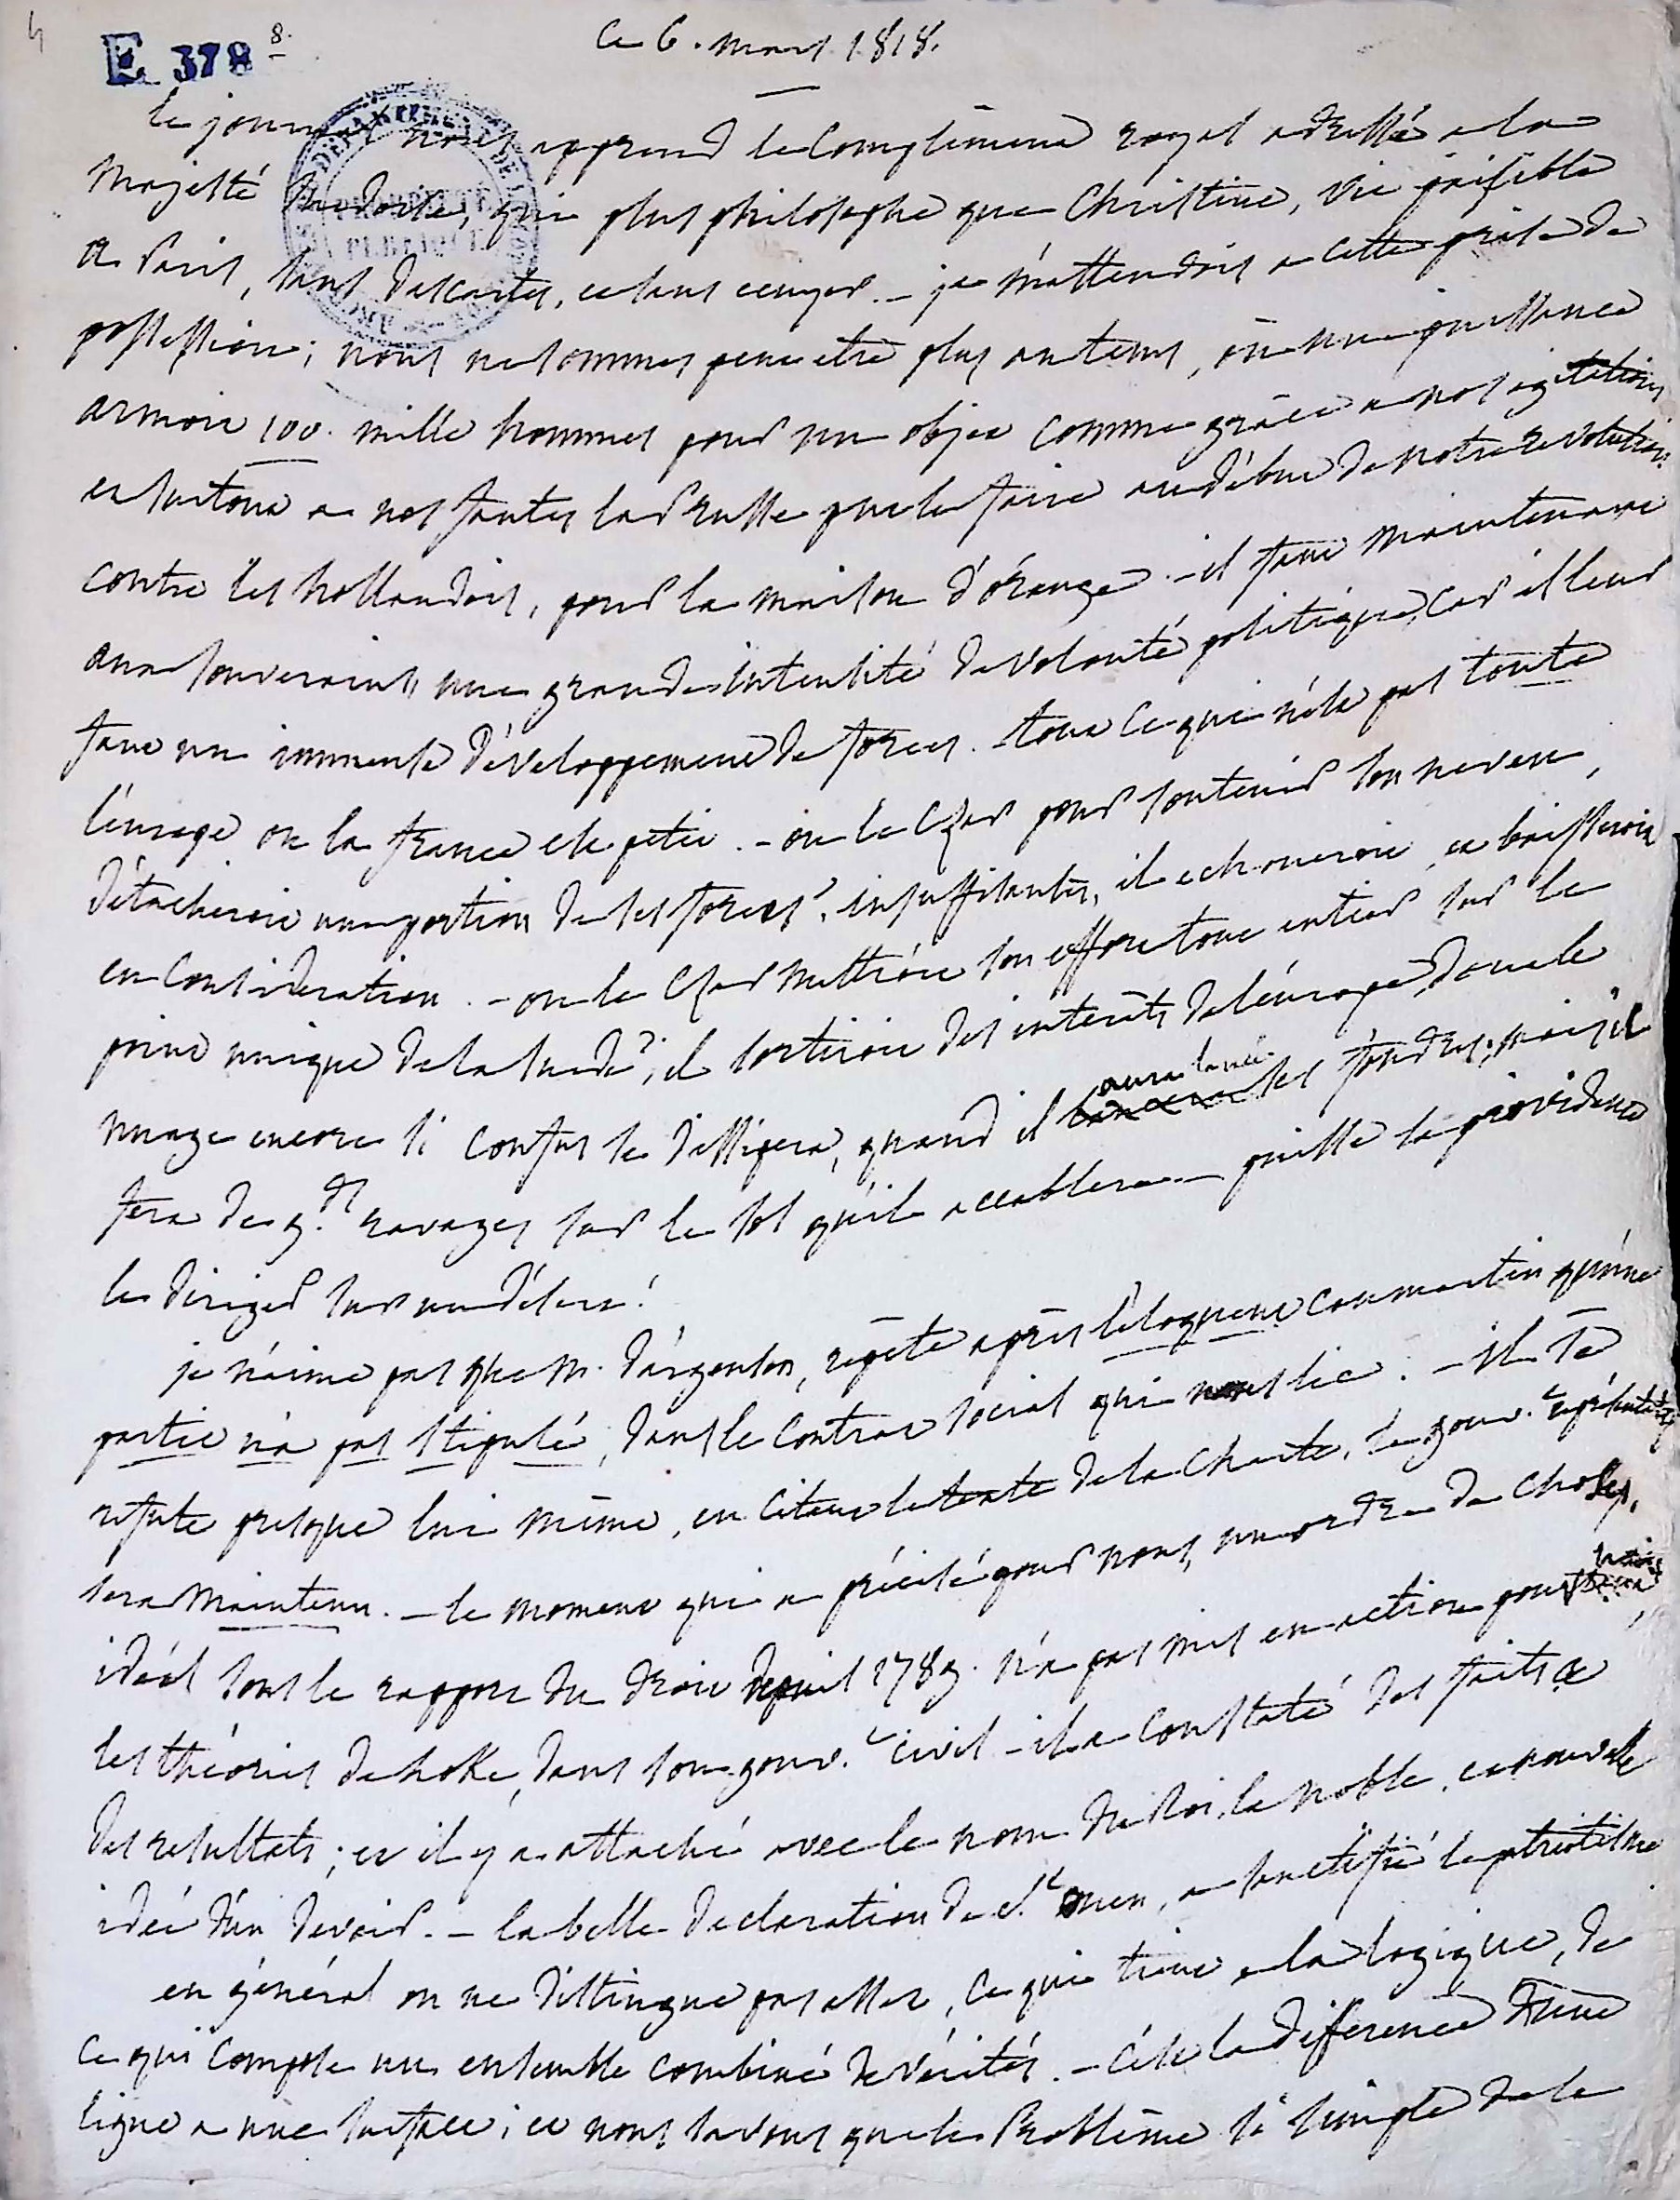 4
E 378 8.
Ce 6. mars 1818.
le journal nous apprend le compliment royal adressé a la
Majesté suedoise, qui plus philosophe que Christine, vit paisible
a Paris, sans descartes, et sans . - je m'attendois a cette prise de
possession; nous ne sommes peut etre plus au tems, où une puissance
armoit 100. mille hommes pour un objet comme grâce a nos agitations
et surtout a nos fautes la Prusse put le faire au début de notre revolution
contre les hollandois, pour la maison d'orange. - il faut maintenant
aux souverains, une grande intensité de volonté politique, car il leur
faut un immense développement de forces. tout ce qui n'est pas toute
l'europe ou la france est petit. - ou le Czar pour soutenir son neveu,
détacheroit une portion de ses forces? insuffisantes, il echoueroit, et baisseroit
en consideration. - ou le Czar mettroit son effort tout entier sur le
point unique de la suede?, il sortiroit des interêts de l'europe, dont le
nuage encore si confus se dissipera, quand il aura lancé ses foudres; mais il
fera de g.ds ravages sur le sol qu'il accablera. - puisse la providence
les diriger sur un désert!
je n'aime pas que M. d'argenson, repète après l'éloquent caumartin qu'une
partie n'a pas stipulé, dans le contrat social qui nous lie. - il se
refute presque lui même, en citant le texte de la charte, le gouv.t représentatif
sera maintenu. - le moment qui a précisé pour nous, un ordre de choses,
idéal sous le rapport du droit depuis 1789. n'a pas mis en action pour
les théories de loke, dans son gouv.t civil - il a constaté des faits et
des resultats; et il y a attaché avec le nom du Roi, la noble, et nouvelle
idée d'un devoir. - la belle declaration de st. ouen, a sanctifié le patriotisme
en général on ne distingue pas assez, ce qui tient a la logique, de
ce qui compose un ensemble combiné de vérités. - c'est la difference d'une
ligne a une surface; et nous savons que le Problème si simple de la